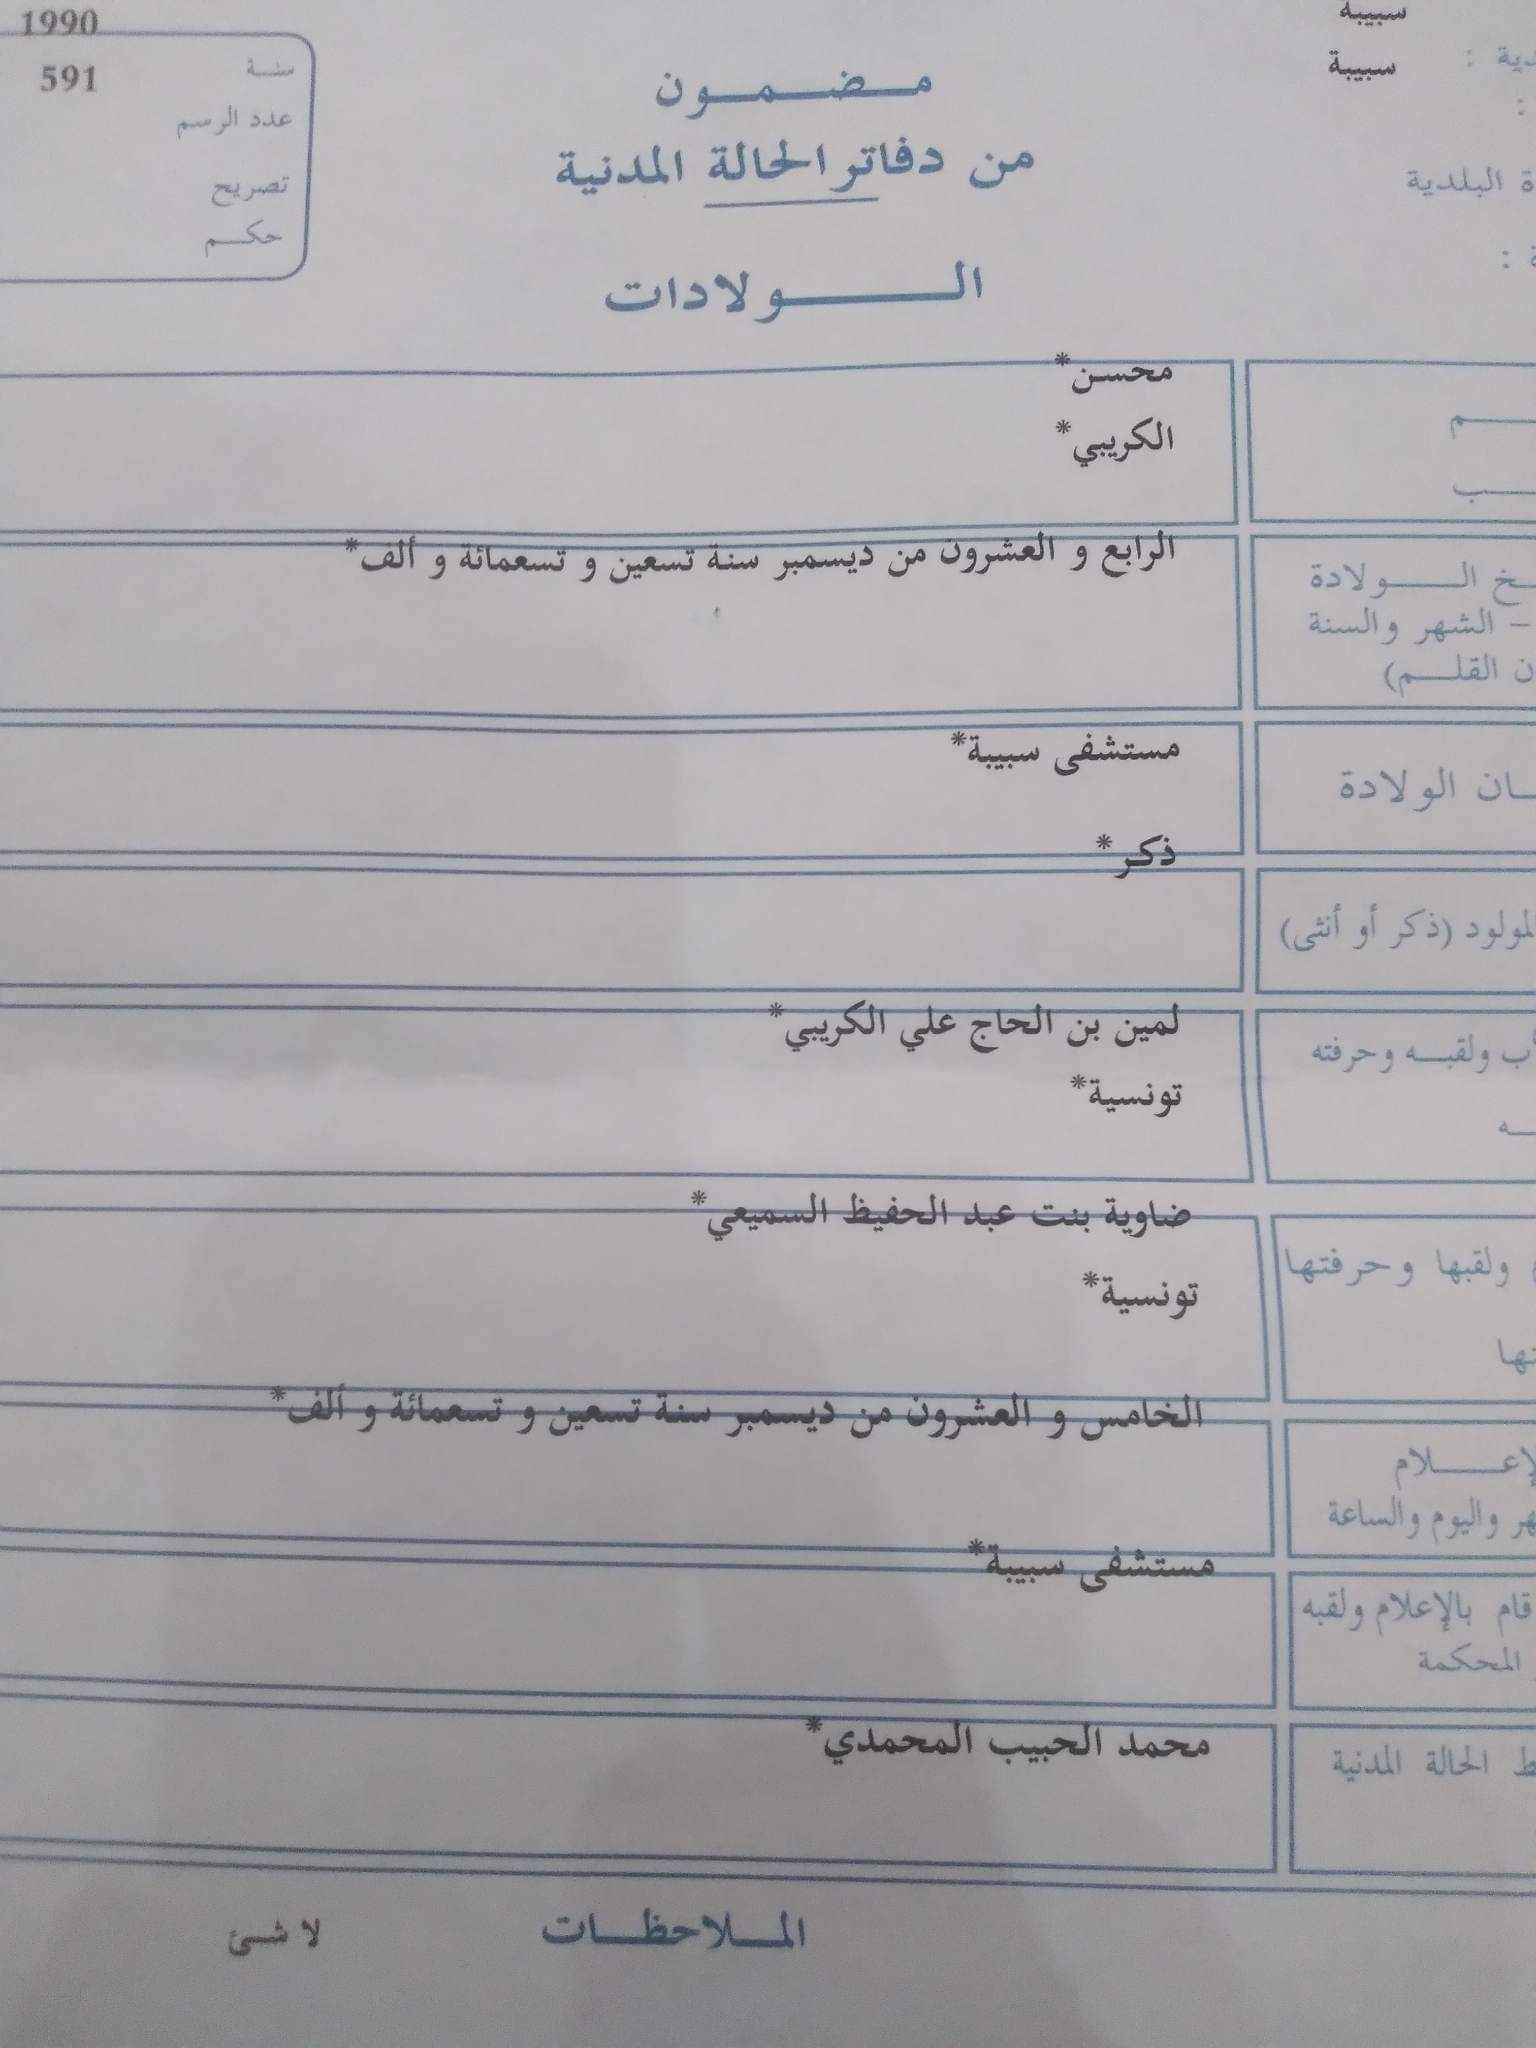 سبيبة
دية : سبيبة
:
ة البلدية
ة :
1990
سنة
591
عدد الرسم
تصريح
حكم
مضمون
من دفاتر الحالة المدنية
الولادات
محسن*
م
الكريبي*
ب
الرابع و العشرون من ديسمبر سنة تسعين و تسعمائة و ألف*
خ الولادة
– الشهر والسنة
ن القلم)
مستشفى سبيبة*
ان الولادة
ذكر*
لمولود (ذكر أو أنثى)
لمين بن الحاج علي الكريبي*
أب ولقبه وحرفته
تونسية*
ه
ضاوية بنت عبد الحفيظ السميعي*
ولقبها وحرفتها
تونسية*
تها
الخامس و العشرون من ديسمبر سنة تسعين و تسعمائة و ألف*
لإعلام
هر واليوم والساعة
مستشفى سبيبة*
قام بالإعلام ولقبه
المحكمة
محمد الحبيب المحمدي*
ط الحالة المدنية
الملاحظات
لا شئ